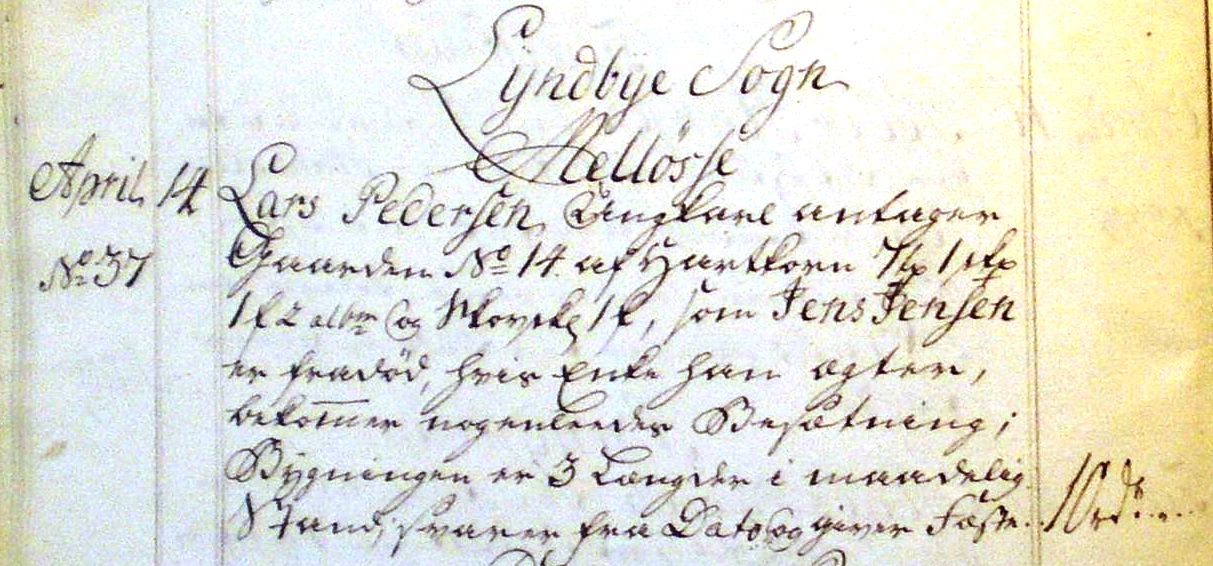 Lyndbye Sogn
Melløsse
April 14 Lars Pedersen Ungkarl antager
No 37 Gaarden No 14 af Hartkorn 7 tr 1 skp
1 f 2 albm og Skovsk 1 f, som Jens Jensen
er fradöd, hvis Enke han ægter,
bekommer nogenleedes Besætning;
Bygningen er 3 Længder i maadelig
Stand, svarer fra Dato og giver Fæste.. 10 rd